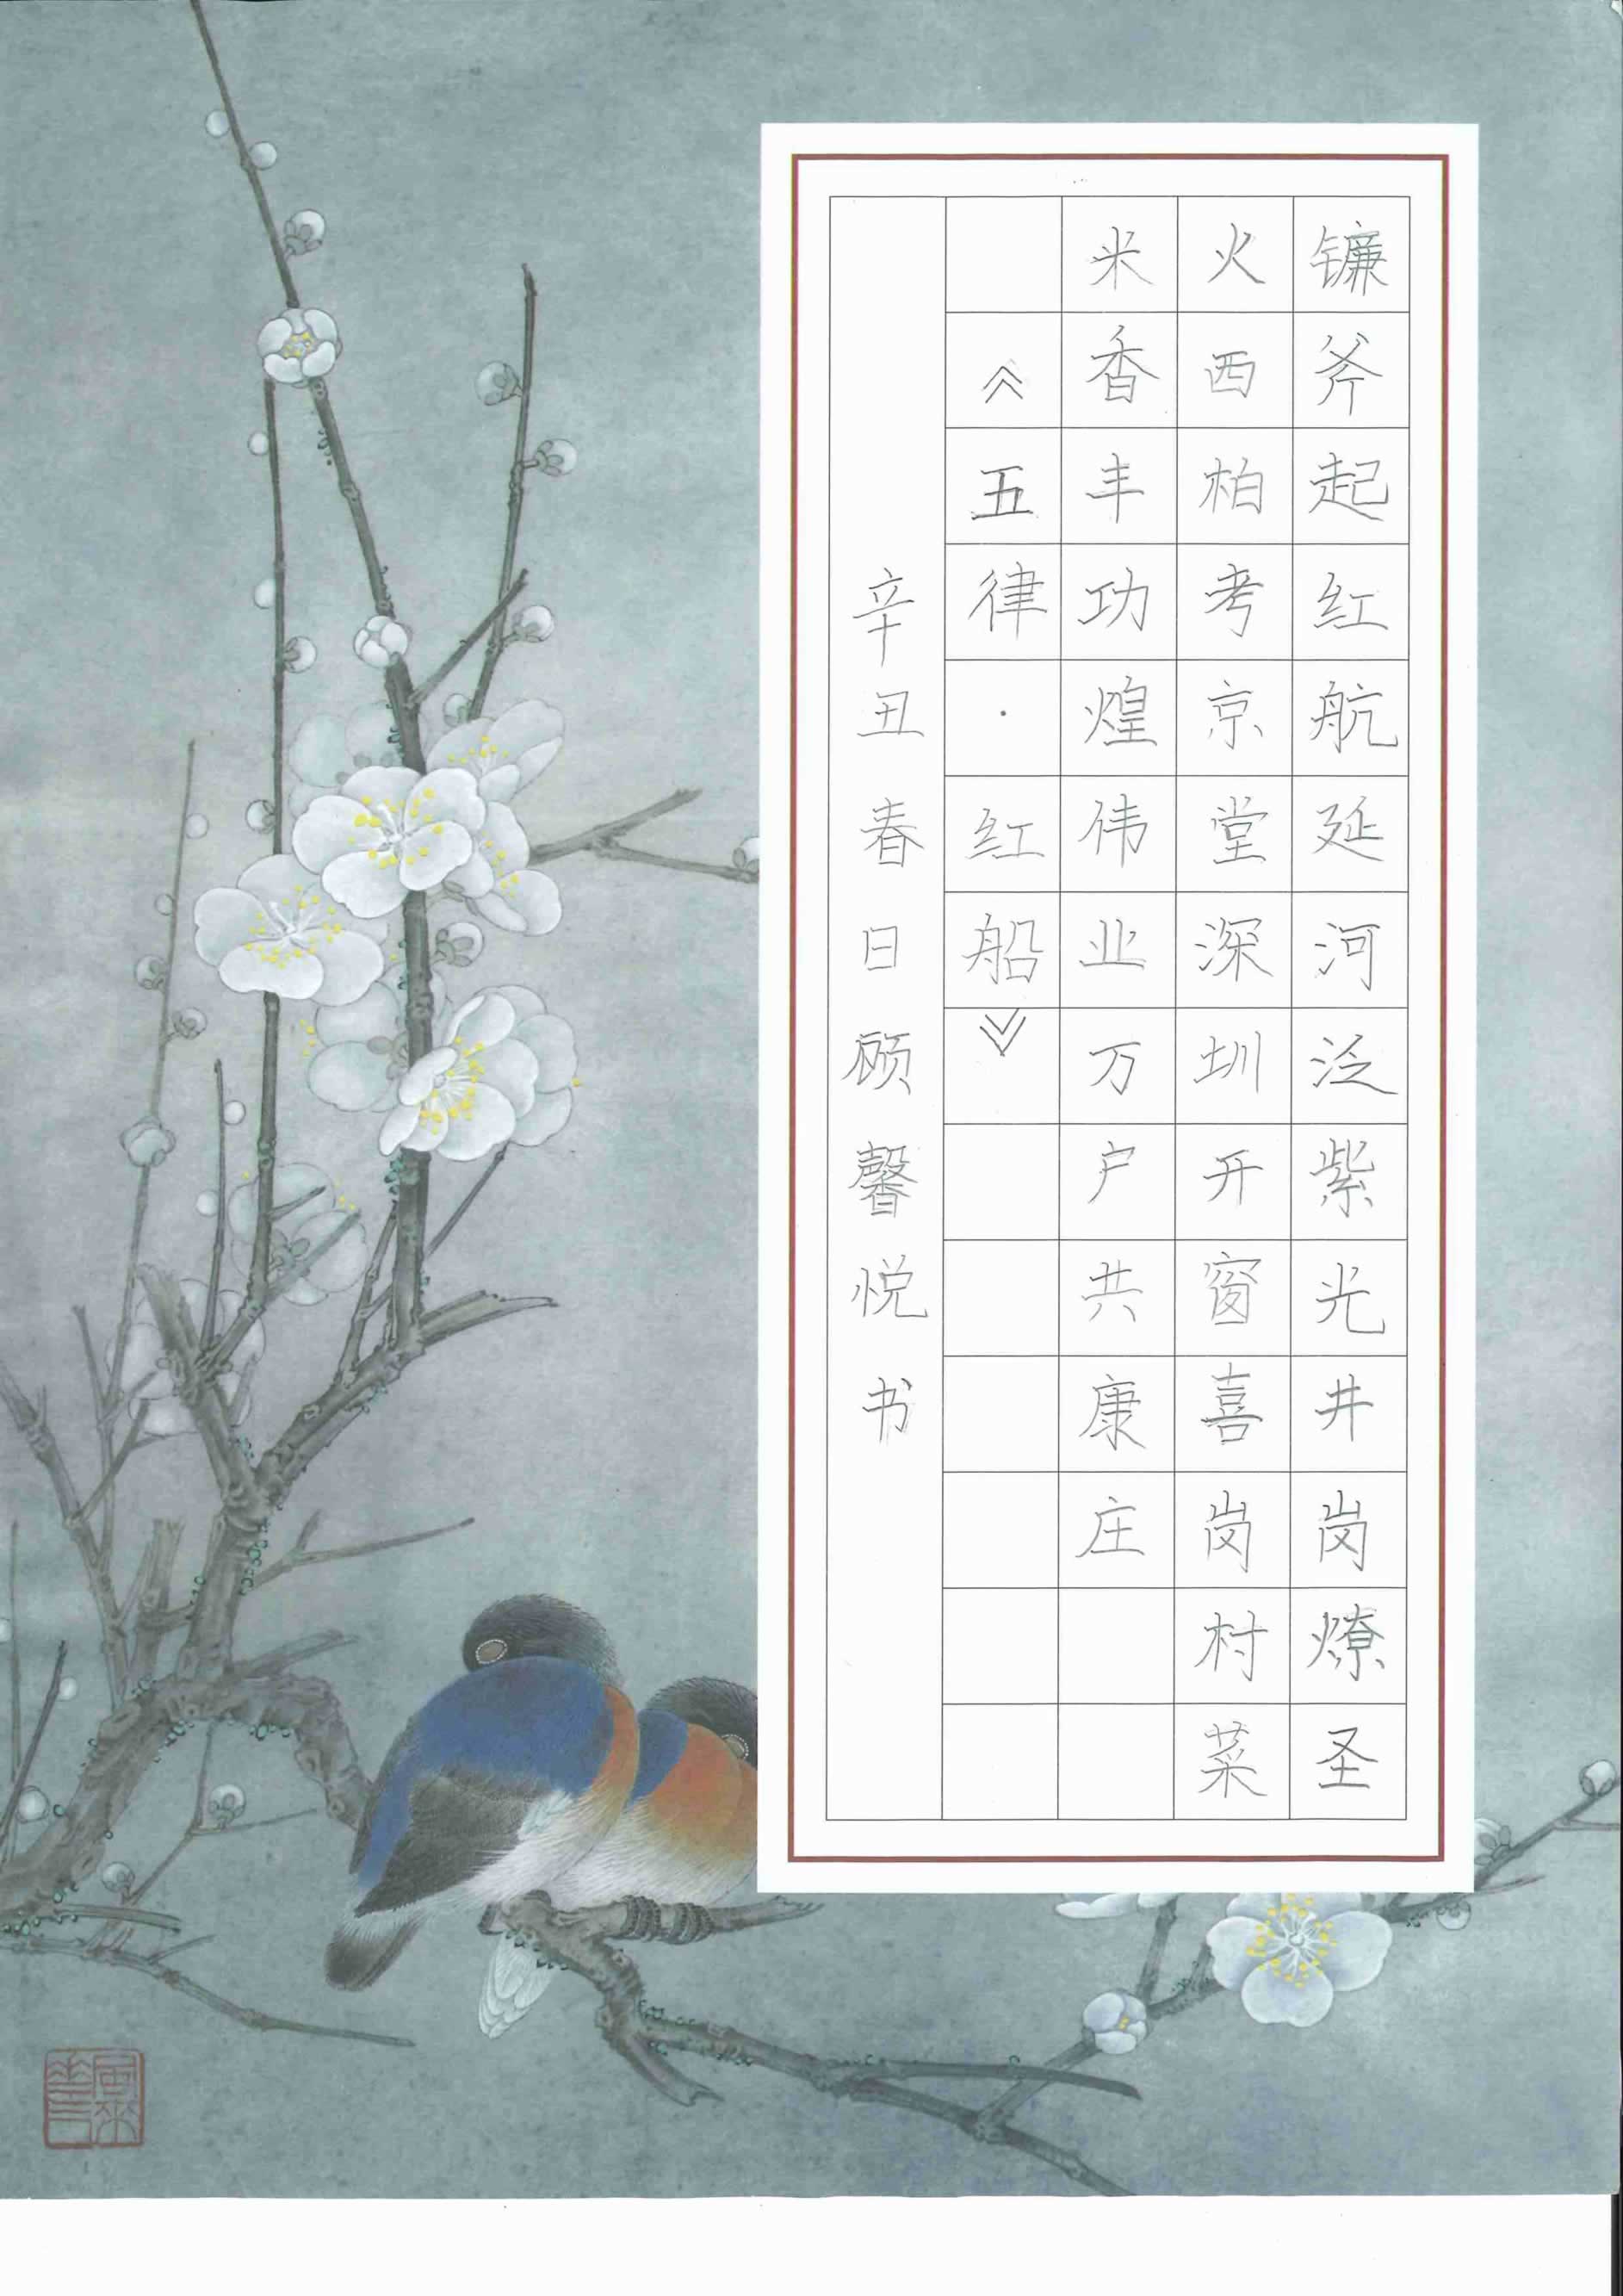 镰斧起红航延河泛紫光井岗燎圣
火西柏考京堂深圳开窗喜岗村菜
米香丰功煌伟业万户共康庄
《五律·红船》
辛丑春日顾馨悦书